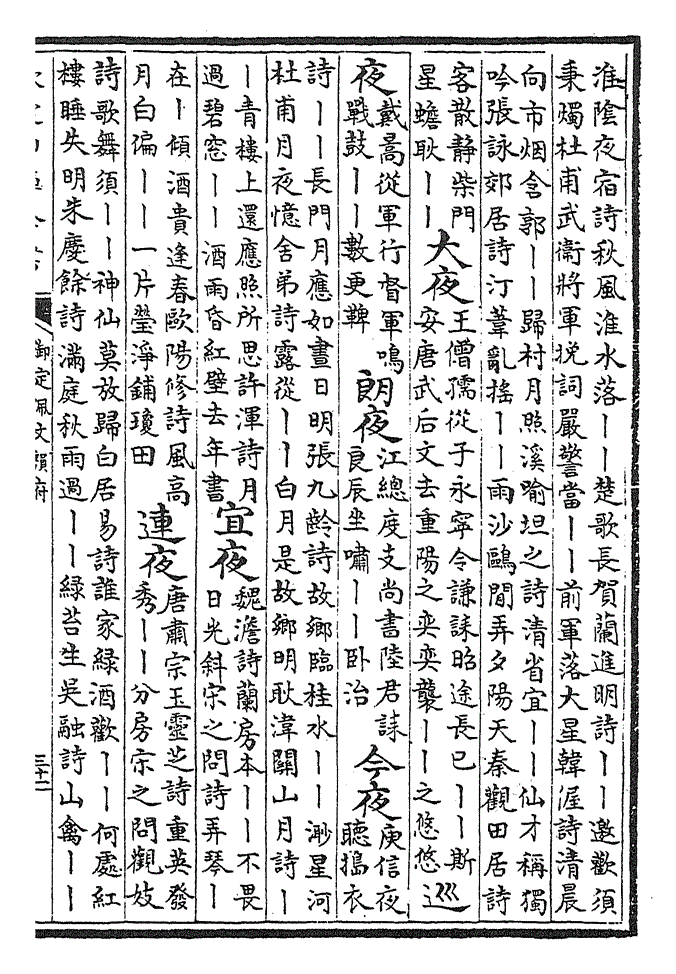 淮陰夜宿詩秋風淮水落丨丨楚歌長賀蘭進明詩丨丨邀歡須
秉燭杜甫武衛將軍挽詞嚴警當丨丨前軍落大星韓偓詩清晨
向市烟含郭丨丨歸村月照溪喻坦之詩清省宜丨丨仙才稱獨
吟張詠郊居詩汀葦亂搖丨丨雨沙鷗閒弄夕陽天秦觀田居詩
客散静柴門
星蟾耿丨丨
大夜
王僧孺從子永寧令謙誄昭途長已丨丨斯
安唐武后文去重陽之奕奕襲丨丨之悠悠
巡
夜
戴暠從軍行督軍鳴
戰鼓丨丨數更鞞
朗夜
江總度支尚書陸君誄
良辰坐嘯丨丨卧治
今夜
庾信夜
聽搗衣
詩丨丨長門月應如晝日明張九齡詩故鄉臨桂水丨丨渺星河
杜甫月夜憶舍弟詩露從丨丨白月是故鄉明耿湋關山月詩丨
丨青樓上還應照所思許渾詩月
過碧窓丨丨酒雨昏紅壁去年書
宜夜
魏澹詩蘭房本丨丨不畏
日光斜宋之問詩弄琴丨
在丨傾酒貴逢春歐陽修詩風高
月白偏丨丨一片瑩淨鋪瓊田
連夜
唐肅宗玉靈芝詩重英發
秀丨丨分房宋之問觀妓
詩歌舞須丨丨神仙莫放歸白居易詩誰家綠酒歡丨丨何處紅
樓睡失明朱慶餘詩滿庭秋雨過丨丨綠苔生吳融詩山禽丨丨
御定佩文韻府